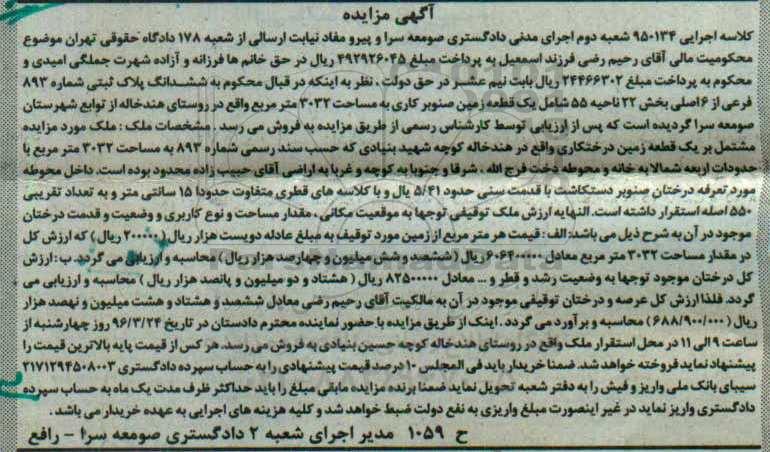 آگهی مزایده
کلاسه اجرایی ۹۵۰۱۳۴ شعبه دوم اجرای مدنی دادگستری صومعه سرا و پیرو مفاد نیابت ارسالی از شعبه ۱۷۸ دادگاه حقوقی تهران موضوع
محکومیت مالی آقای رحیم رضی فرزند اسمعیل به پرداخت مبلغ ۴۹۲۹۲۶۰۴۵ ریال در حق خانم ها فرزانه و آزاده شهرت جملگی امیدی و
محکوم به پرداخت مبلغ ۲۴۴۶۶۳۰۲ ریال بابت نیم عشر در حق دولت ، نظر به اینکه در قبال محکوم به ششدانگ پلاک ثبتی شماره ۸۹۳
فرعی از ۶ اصلی بخش ۲۲ ناحیه ۵۵ شامل یک قطعه زمین صنوبر کاری به مساحت ۳۰۳۲ متر مربع واقع در روستای هندخاله از توابع شهرستان
صومعه سرا گردیده است که پس از ارزیابی توسط کارشناس رسمی از طریق مزایده به فروش می رسد . مشخصات ملک : ملک مورد مزایده
مشتمل بر یک قطعه زمین درختکاری واقع در هندخاله کوچه شهید بنیادی که حسب سند رسمی شماره ۸۹۳ به مساحت ۳۰۳۲ متر مربع با
حدودات اربعه شمالا به خانه و محوطه دخت فرج الله ، شرقا و جنوبا به کوچه و غربا به اراضی آقای حبیب زاده محدود بوده است. داخل محوطه
مورد تعرفه درختان صنوبر دستکاشت با قدمت سنی حدود ۵/۴۱ یال و با کلاسه های قطری متفاوت حدودا ۱۵ سانتی متر و به تعداد تقریبی
۵۵۰ اصله استقرار داشته است. النهایه ارزش ملک توقیفی توجها به موقعیت مکانی ، مقدار مساحت و نوع کاربری و وضعیت و قدمت درختان
موجود در آن به شرح ذیل می باشد: الف : قیمت هر متر مربع از زمین مورد توقیف به مبلغ عادله دویست هزار ریال ( ۲۰۰۰۰۰ ریال ) که ارزش کل
در مقدار مساحت ۳۰۳۲ متر مربع معادل ۶۰۶۴۰۰۰۰۰ ریال (ششصد و شش میلیون و چهارصد هزار ریال ) محاسبه و ارزیابی می گردد. ب : ارزش
کل درختان موجود توجها به وضعیت رشد و قطر و ... معادل ۸۲۵۰۰۰۰۰ ریال ( هشتاد و دو میلیون و پانصد هزار ریال ) محاسبه و ارزیابی می
گردد. فلذا ارزش کل عرصه و درختان توقیفی موجود در آن به مالکیت آقای رحیم رضی معادل ششصد و هشتاد و هشت میلیون و نهصد هزار
ریال ( ۶۸۸/۹۰۰/۰۰۰ ) محاسبه و برآورد می گردد . اینک از طریق مزایده با حضور نماینده محترم دادستان در تاریخ ۹۶/۳/۲۴ روز چهارشنبه از
ساعت ۹ الی ۱۱ در محل استقرار ملک واقع در روستای هندخاله کوچه حسین بنیادی به فروش می رسد. هر کس از قیمت پایه بالاترین قیمت را
پیشنهاد نماید فروخته خواهد شد. ضمنا خریدار باید فی المجلس ۱۰ درصد قیمت پیشنهادی را به حساب سپرده دادگستری ۲۱۷۱۲۹۴۵۰۸۰۰۳
سیبای بانک ملی واریز و فیش را به دفتر شعبه تحویل نماید ضمنا برنده مزایده مابقی مبلغ را باید حداکثر ظرف مدت یک ماه به حساب سپرده
دادگستری واریز نماید در غیر اینصورت مبلغ واریزی به نفع دولت ضبط خواهد شد و کلیه هزینه های اجرایی به عهده خریدار می باشد .
ح ۱۰۵۹ مدیر اجرای شعبه ۲ دادگستری صومعه سرا - رافع